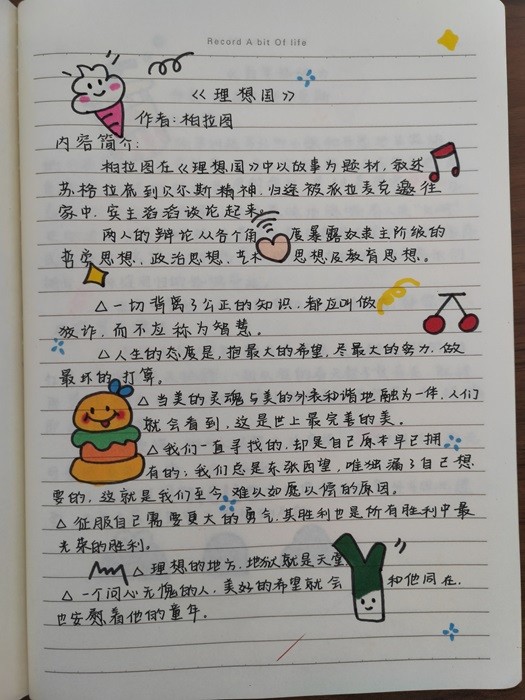 Record A bit Of life
《理想国》
作者:柏拉图
内容简介:
柏拉图在《理想国》中以故事为题材,叙述
苏格拉底到贝尔斯祷神,归途被派拉麦克邀往
家中,宾主滔滔谈论起来。
两人的辩论从各个角度暴露奴隶主阶级的
哲学思想、政治思想、艺术思想及教育思想。
△一切背离了公正的知识,都应叫做
狡诈,而不应称为智慧。
△人生的态度是,抱最大的希望,尽最大的努力,做
最坏的打算。
△当美的灵魂与美的外表和谐地融为一体,人们
就会看到,这是世上最完善的美。
△我们一直寻找的,却是自己原本早已拥
有的;我们总是东张西望,唯独漏了自己想
要的,这就是我们至今难以如愿以偿的原因。
△征服自己需要更大的勇气,其胜利也是所有胜利中最
光荣的胜利。
△理想的地方,地狱就是天堂
△一个问心无愧的人,美好的希望就会和他同在,
也安慰着他的童年。